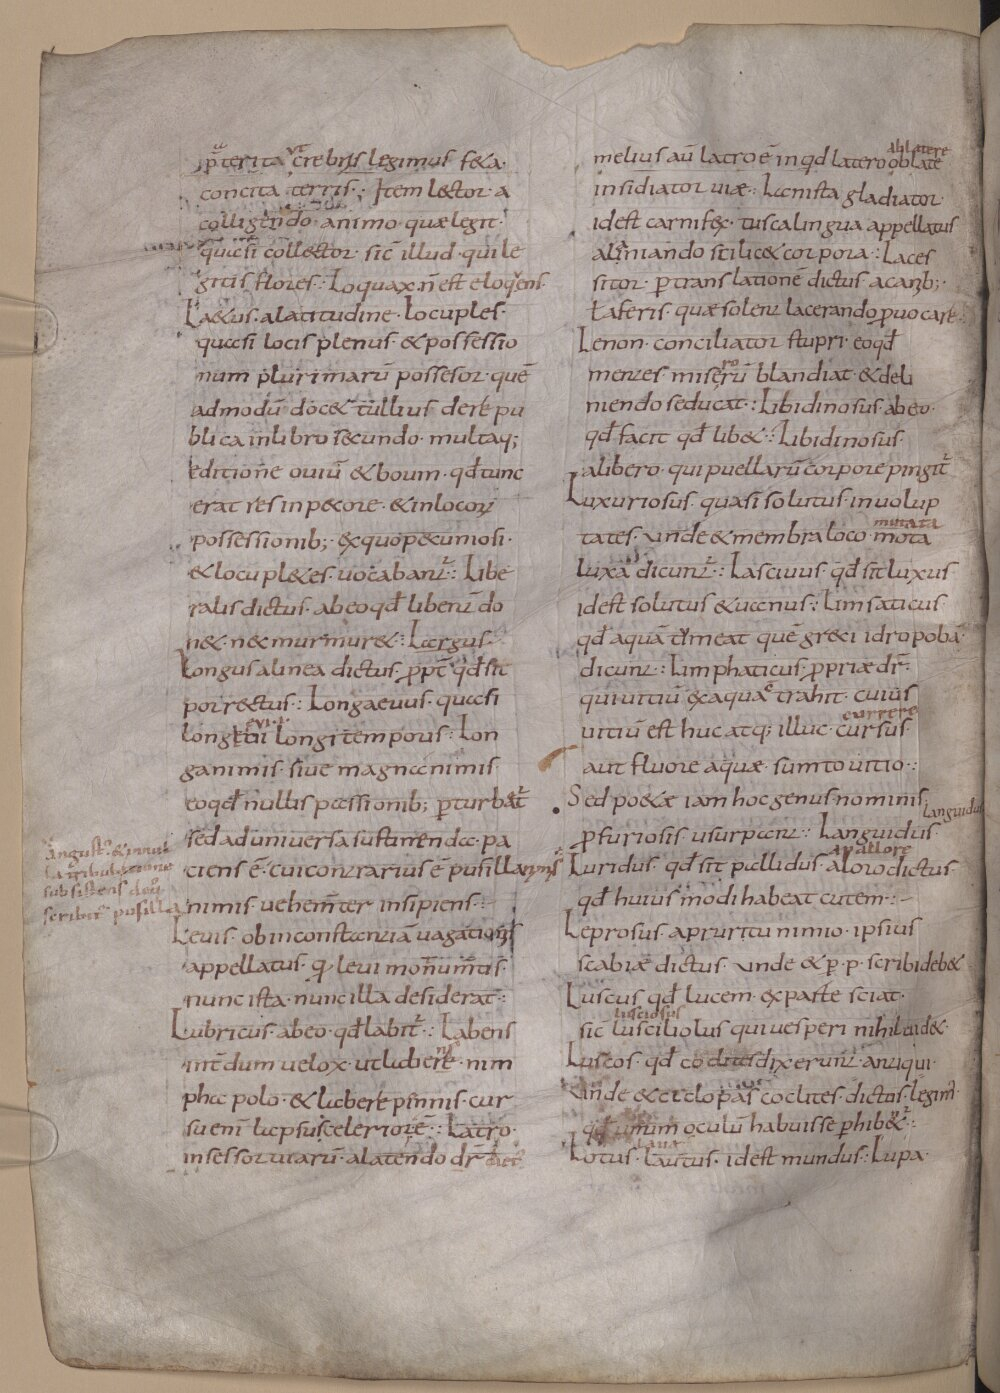 p̄terita ut crebriis legimus fe&a·
concita terris· Item lector a
colligendo· animo· quae legit·
quasi collector· sic̄ illud· qui le
gitis flores·: Loquax· n̄ est eloquens·
La&us· alatitudine· Locuples·
quasi locis plenus· & possessio
num plurimarū possesor· quē
admodū doc& tullius dere pu
blica inlibro secundo· multaq;
editione ouiū & boum· qđ tunc
erat res inpecore· & inlocorū
possessionib; exquo pecuniosi·
& locupl&es· uocabant̄·: Libe
ralis dictus· abeo qđ libent̄ do
n& n& murmur&·: Largus
Longus alinea dictus ꝓpt̄ qđ sit
porrectus·: Longaeuus· quasi
longi temporis·: Lon
ganimis· siue magnanimis·
eoqđ nullis passionib; p̄turbat̄
sed aduniversa sustinenda pa
ciens ē· cui contrarius ē pusillanimis
angust' & in nul
la tribulatione
subsistens de quo
scribit̄ pusilla
nimis uehem̄ter insipiens·:
Leuis· ob inconstantiā uagationis
appellatus· leui
nunc ista· nunc illa desiderat·:
Lubricus· abeo· qđ labit̄·: Labens
int̄dum uelox· ut labere· nim
pha polo· & labere pinnis· cur
su eni lapsus celeriorē·: Latro·
insessor uiarū· alatendo dr̄
ab latere
melius au̅ latro ē inqđ latero oblate
insidiator uiae·: Lanista gladiator
idest carnifex· tusca lingua appellatus
alaniando scilic& corpora·: Laces
sitor· p̄ translationē dictus acanib;·
ł aferis· quae solent lacerando ꝓuocare·
Lenon· conciliator stupri· eoqđ
mentes miserorū blandiat· & deli
niendo seducat·: Libidinosus· abeo·
qđ facit qđ lib&·: Libidinosus·
alibero· qui puellarū corpore pingit̄
Luxuriosus· quasi solutus· in uolup
mutata
tates· unde & membra loco mota
luxa dicunt̄·: Lasciuus· qđ sit luxus·
idest solutus & uanus·: Limsaticus
qđ aquā timeat quē greci idropobā·
dicunt·: Limphaticus· ꝓpriae dr̄·
qui uitiū ex aquae trahit· cuius
currere
uitiū est huc atq; illuc· cursus·
aut fluore aquae· sumto uitio·:
Sed po&ae iam hoc genus nominis
languidus
ꝓ furiosis usurpant·: Languidus
apallore
Luridus· qđ sit pallidus· aloro dictus·
qđ huius modi habeat cutem·:
Leprosus apruritu nimio· ipsius
scabiae dictus· unde & p̄·p· scribi deb&·
Luscus qđ lucem· ex parte sciat·
lusciosus
sic lusciliolus qui uesperi nihil uid&·
Luscos· qđ coclites dixerunt antiqui·
unde & ciclopas coclites· dictos· legim·
qđ unum oculū habuisse p̄hib&·:
laua
Lotus· lautus· idest mundus·: Lupa·